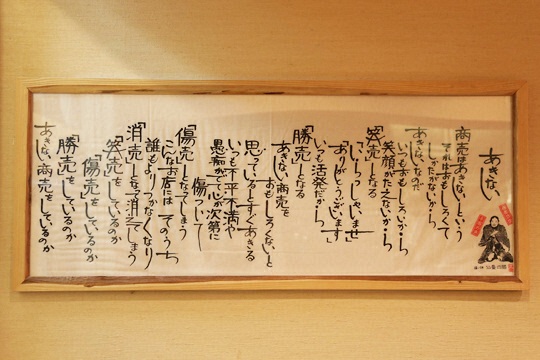 あきない
商売はあきないという
それはおもしろくて
しかたがないから
あきない、なのだ
いつもおもしろいから
笑顔がたえないから
「笑売」となる
「いらっしゃいませ」
「ありがとうございます」
いつも活発だから
「勝売」となる
あきない商売を
おもしろくない、と
思っているとすぐあきる
いつも不平不満や
愚痴がでて心が次第に
傷ついて
「傷売」となってしまう
こんなお店には そのうち
誰もよりつかなくなり
「消売」となって消えてしまう
「笑売」をしているのか
「傷売」をしているのか
「勝売」をしているのか
あきない商売をしているのか